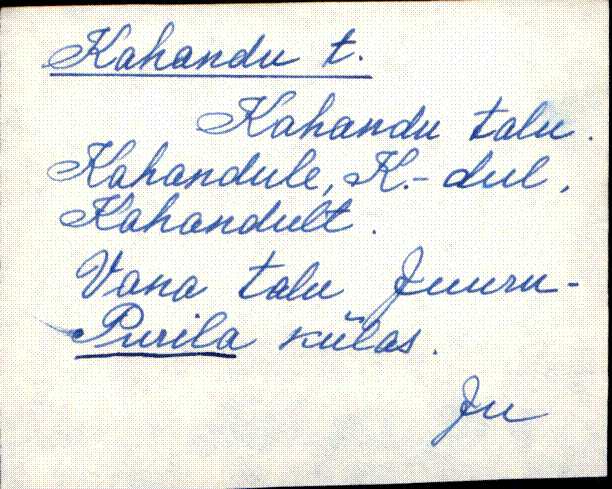 Kahandu t.
Kahandu talu.
Kahandule, K.-dul,
Kahandult.
Vana talu Juuru-
Purila külas.
Ju